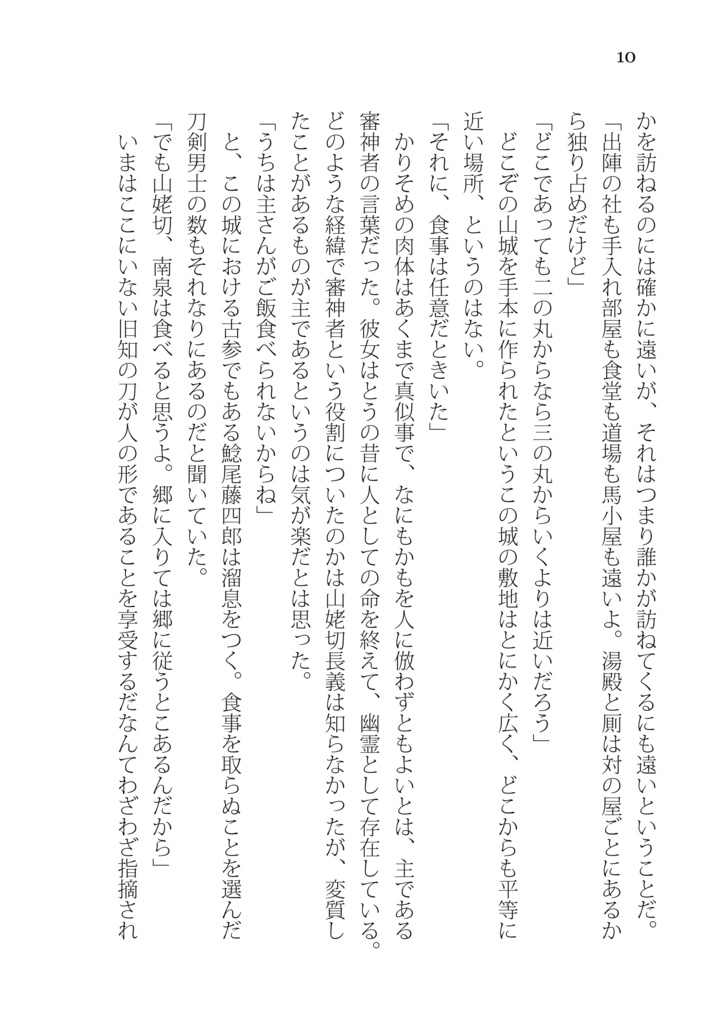 10
かを訪ねるのには確かに遠いが、それはつまり誰かが訪ねてくるにも遠いということだ。
「出陣の社も手入れ部屋も食堂も道場も馬小屋も遠いよ。湯殿と厠は対の屋ごとにあるか
ら独り占めだけど」
「どこであっても二の丸からなら三の丸からいくよりは近いだろう」
どこぞの山城を手本に作られたというこの城の敷地はとにかく広く、どこからも平等に
近い場所、というのはない。
「それに、食事は任意だときいた」
かりそめの肉体はあくまで真似事で、なにもかもを人に倣わずともよいとは、主である
審神者の言葉だった。彼女はとうの昔に人としての命を終えて、幽霊として存在している。
どのような経緯で審神者という役割についたのかは山姥切長義は知らなかったが、変質し
たことがあるものが主であるというのは気が楽だとは思った。
「うちは主さんがご飯食べられないからね」
と、この城における古参でもある鯰尾藤四郎は溜息をつく。食事を取らぬことを選んだ
刀剣男士の数もそれなりにあるのだと聞いていた。
「でも山姥切、南泉は食べると思うよ。郷に入りては郷に従うとこあるんだから」
いまはここにいない旧知の刀が人の形であることを享受するだなんてわざわざ指摘され